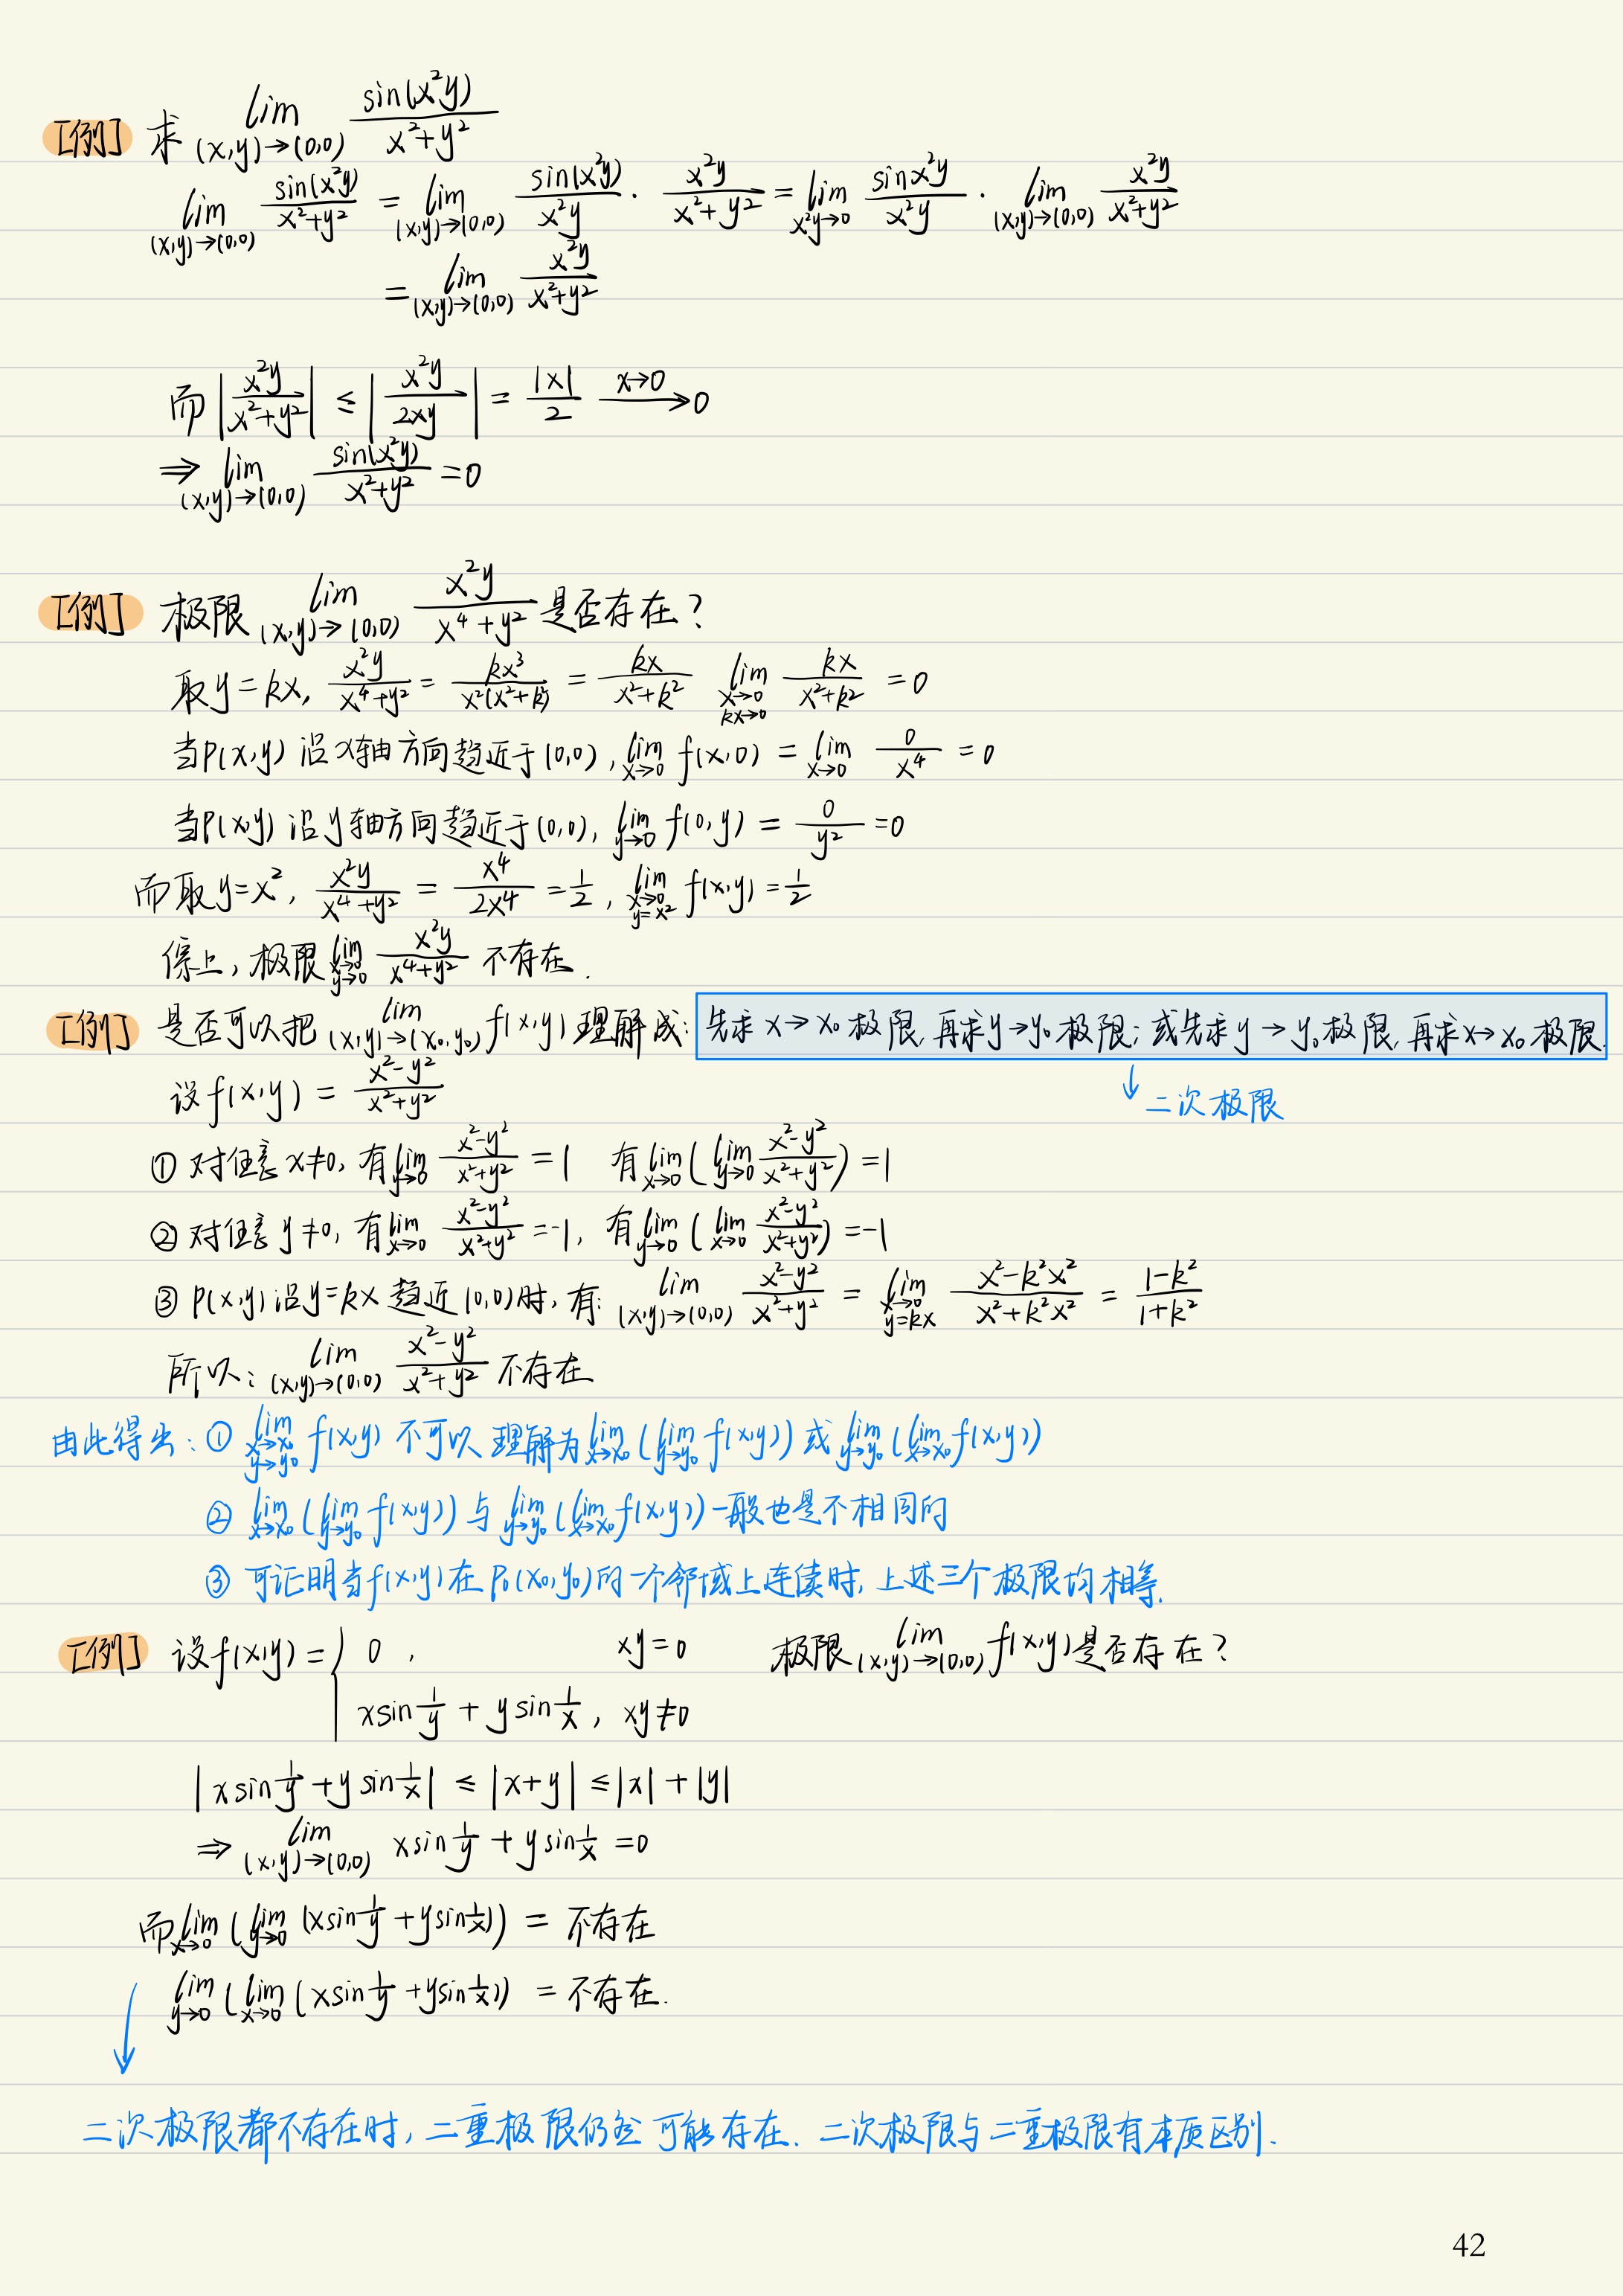 [例] 求 lim_{(x,y)→(0,0)} sin(x²y)/(x²+y²)
lim_{(x,y)→(0,0)} sin(x²y)/(x²+y²) = lim_{(x,y)→(0,0)} sin(x²y)/(x²y) · x²y/(x²+y²) = lim_{x²y→0} sinx²y/(x²y) · lim_{(x,y)→(0,0)} x²y/(x²+y²)
= lim_{(x,y)→(0,0)} x²y/(x²+y²)
而 |x²y/(x²+y²)| ≤ |x²y/(2xy)| = |x|/2 —x→0→ 0
⇒ lim_{(x,y)→(0,0)} sin(x²y)/(x²+y²) = 0
[例] 极限 lim_{(x,y)→(0,0)} x²y/(x⁴+y²) 是否存在?
取y=kx, x²y/(x⁴+y²) = kx³/(x²(x²+k)) = kx/(x²+k²) lim_{x→0 kx→0} kx/(x²+k²) = 0
当P(x,y) 沿x轴方向趋近于(0,0), lim_{x→0} f(x,0) = lim_{x→0} 0/x⁴ = 0
当P(x,y) 沿y轴方向趋近于(0,0), lim_{y→0} f(0,y) = 0/y² = 0
而取y=x², x²y/(x⁴+y²) = x⁴/(2x⁴) = 1/2, lim_{x→0 y=x²} f(x,y) = 1/2
综上, 极限 lim_{x→0 y→0} x²y/(x⁴+y²) 不存在.
[例] 是否可以把 lim_{(x,y)→(x₀,y₀)} f(x,y) 理解成: 先求x→x₀极限, 再求y→y₀极限; 或先求y→y₀极限, 再求x→x₀极限.
设f(x,y) = (x²-y²)/(x²+y²)
↓ 二次极限
① 对任意x≠0, 有 lim_{y→0} (x²-y²)/(x²+y²) = 1 有 lim_{x→0} (lim_{y→0} (x²-y²)/(x²+y²)) = 1
② 对任意y≠0, 有 lim_{x→0} (x²-y²)/(x²+y²) = -1, 有 lim_{y→0} (lim_{x→0} (x²-y²)/(x²+y²)) = -1
③ P(x,y)沿y=kx趋近(0,0)时, 有: lim_{(x,y)→(0,0)} (x²-y²)/(x²+y²) = lim_{x→0 y=kx} (x²-k²x²)/(x²+k²x²) = (1-k²)/(1+k²)
所以: lim_{(x,y)→(0,0)} (x²-y²)/(x²+y²) 不存在
由此得出: ① lim_{x→x₀ y→y₀} f(x,y) 不可以理解为 lim_{x→x₀} (lim_{y→y₀} f(x,y)) 或 lim_{y→y₀} (lim_{x→x₀} f(x,y))
② lim_{x→x₀} (lim_{y→y₀} f(x,y)) 与 lim_{y→y₀} (lim_{x→x₀} f(x,y)) 一般也是不相同的
③ 可证明当f(x,y)在P₀(x₀,y₀)的一个邻域上连续时, 上述三个极限均相等.
[例] 设f(x,y) = { 0, xy=0 极限 lim_{(x,y)→(0,0)} f(x,y)是否存在?
xsin1/y + ysin1/x, xy≠0
|xsin1/y + ysin1/x| ≤ |x+y| ≤ |x|+|y|
⇒ lim_{(x,y)→(0,0)} xsin1/y + ysin1/x = 0
而 lim_{x→0} (lim_{y→0} (xsin1/y + ysin1/x)) = 不存在
lim_{y→0} (lim_{x→0} (xsin1/y + ysin1/x)) = 不存在.
↓
二次极限都不存在时, 二重极限仍然可能存在. 二次极限与二重极限有本质区别.
42